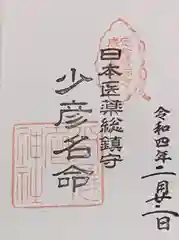 令和四年二月廿二日
日本医薬総鎮守
少彦名命
神社